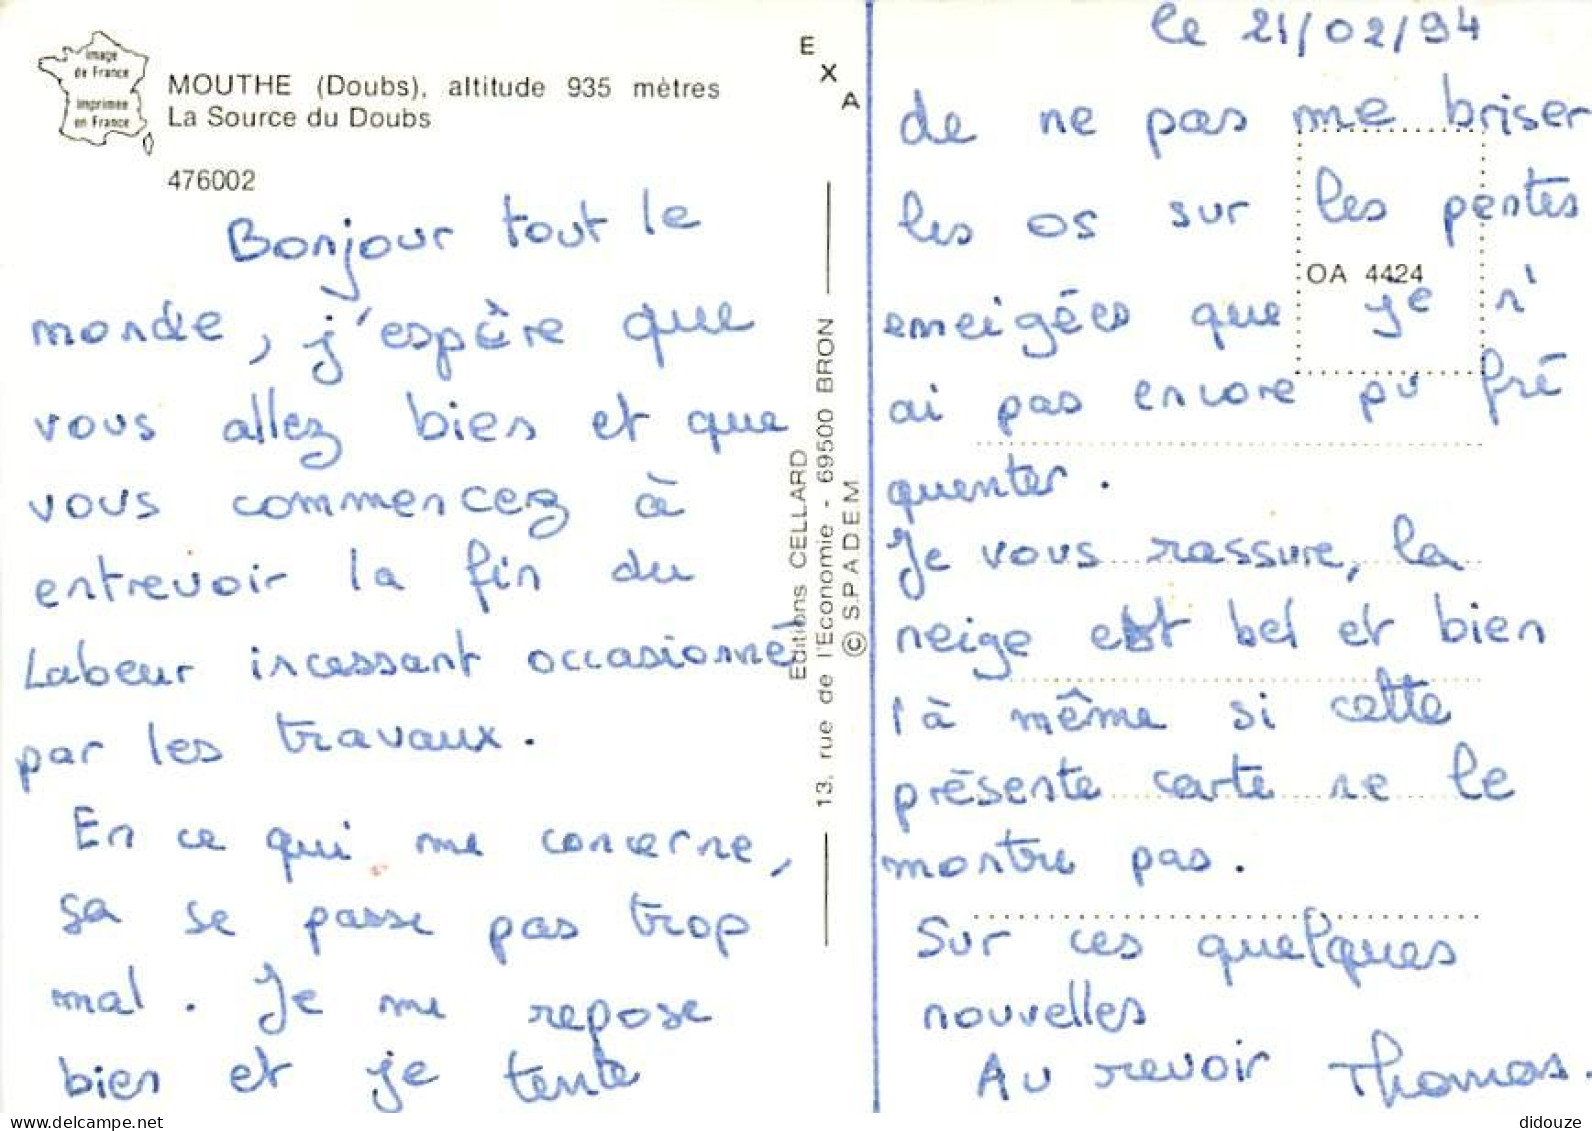 Image
de France
imprimée
en France
MOUTHE (Doubs), altitude 935 mètres
La Source du Doubs
476002
Bonjour tout le
monde, j'espère que
vous allez bien et que
vous commencez à
entrevoir la fin du
Labeur incessant occasionné
par les travaux.
En ce qui me concerne,
sa se passe pas trop
mal. Je me repose
bien et je tente
E
X
A
Editions CELLARD
13, rue de l'Economie - 69500 BRON
© S.P.A.D.E.M.
le 21/02/94
de ne pas me briser
les os sur les pentes
OA 4424
enneigées que je n'
ai pas encore pu fré
quenter.
Je vous rassure, la
neige est bel et bien
là même si cette
présente carte ne le
montre pas.
Sur ces quelques
nouvelles
Au revoir Thomas.
didouze